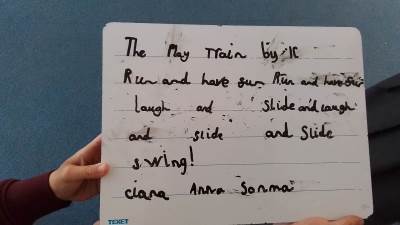 The Play Train by
Run and have fun Run and have fun
laugh and Slide and laugh
and slide and Slide
swing!
ciara Anna Somma
TEXET